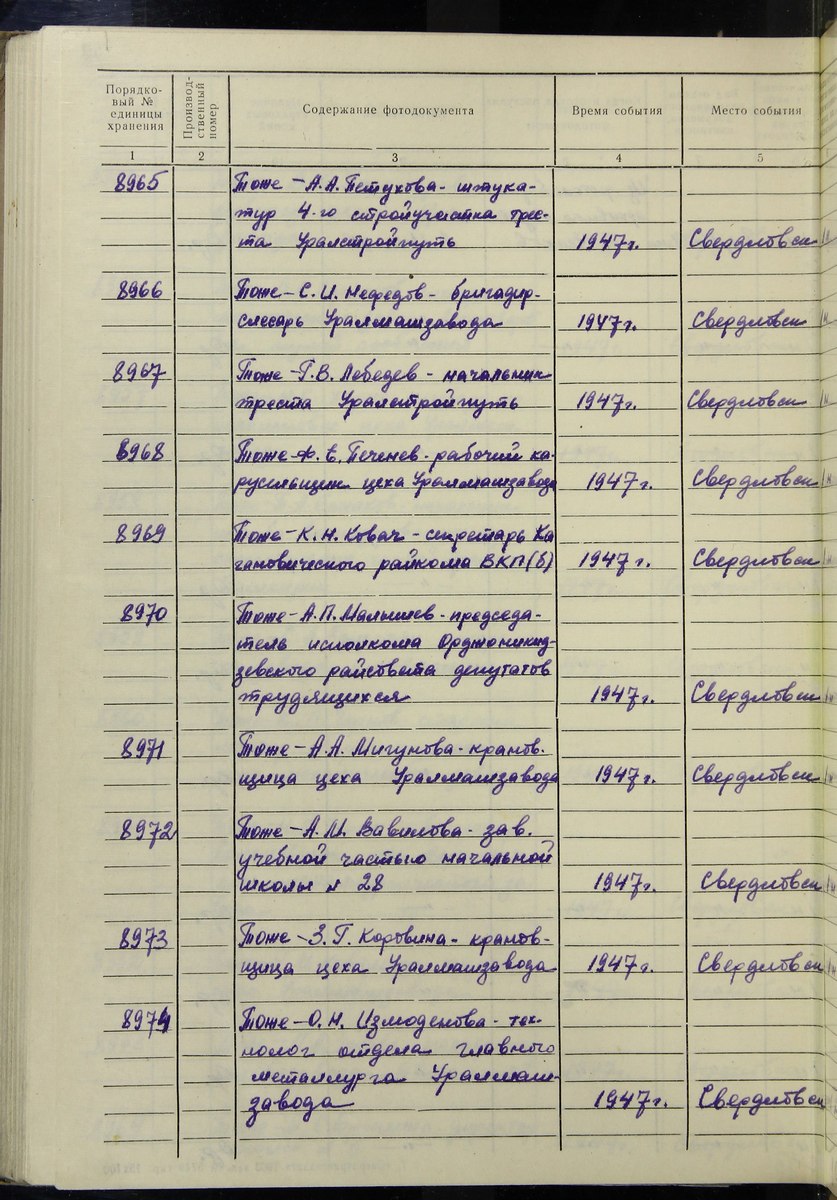 Порядко-
вый №
единицы
хранения
Производ-
ственный
номер
Содержание фотодокумента
Время события
Место события
1
2
3
4
5
8965
Тоже - А.А. Петухова - штука-
тур 4-го стройучастка трес-
та Уралстройпуть 1947 г. Свердловск
8966
Тоже - С.И. Нефедов - бригадир-
слесарь Уралмашзавода 1947 г. Свердловск
8967
Тоже - Г.В. Лебедев - начальник
треста Уралстройпуть 1947 г. Свердловск
8968
Тоже - Ф.Е. Печенев - рабочий ка-
русельщик цеха Уралмашзавода 1947 г. Свердловск
8969
Тоже - К.Н. Ковач - секретарь Ка
гановического райкома ВКП(б) 1947 г. Свердловск
8970
Тоже - А.П. Малышев - председа-
тель исполкома Орджоникид-
зевского райсовета депутатов
трудящихся 1947 г. Свердловск
8971
Тоже - А.А. Мигунова - кранов-
щица цеха Уралмашзавода 1947 г. Свердловск
8972
Тоже - А.М. Вавилова - зав.
учебной частью начальной
школы № 28 1947 г. Свердловск
8973
Тоже - З.Г. Коровина - кранов-
щица цеха Уралмашзавода 1947 г. Свердловск
8974
Тоже - О.Н. Измоденова - тех-
нолог отдела главного
металлурга Уралмаш-
завода 1947 г. Свердловск